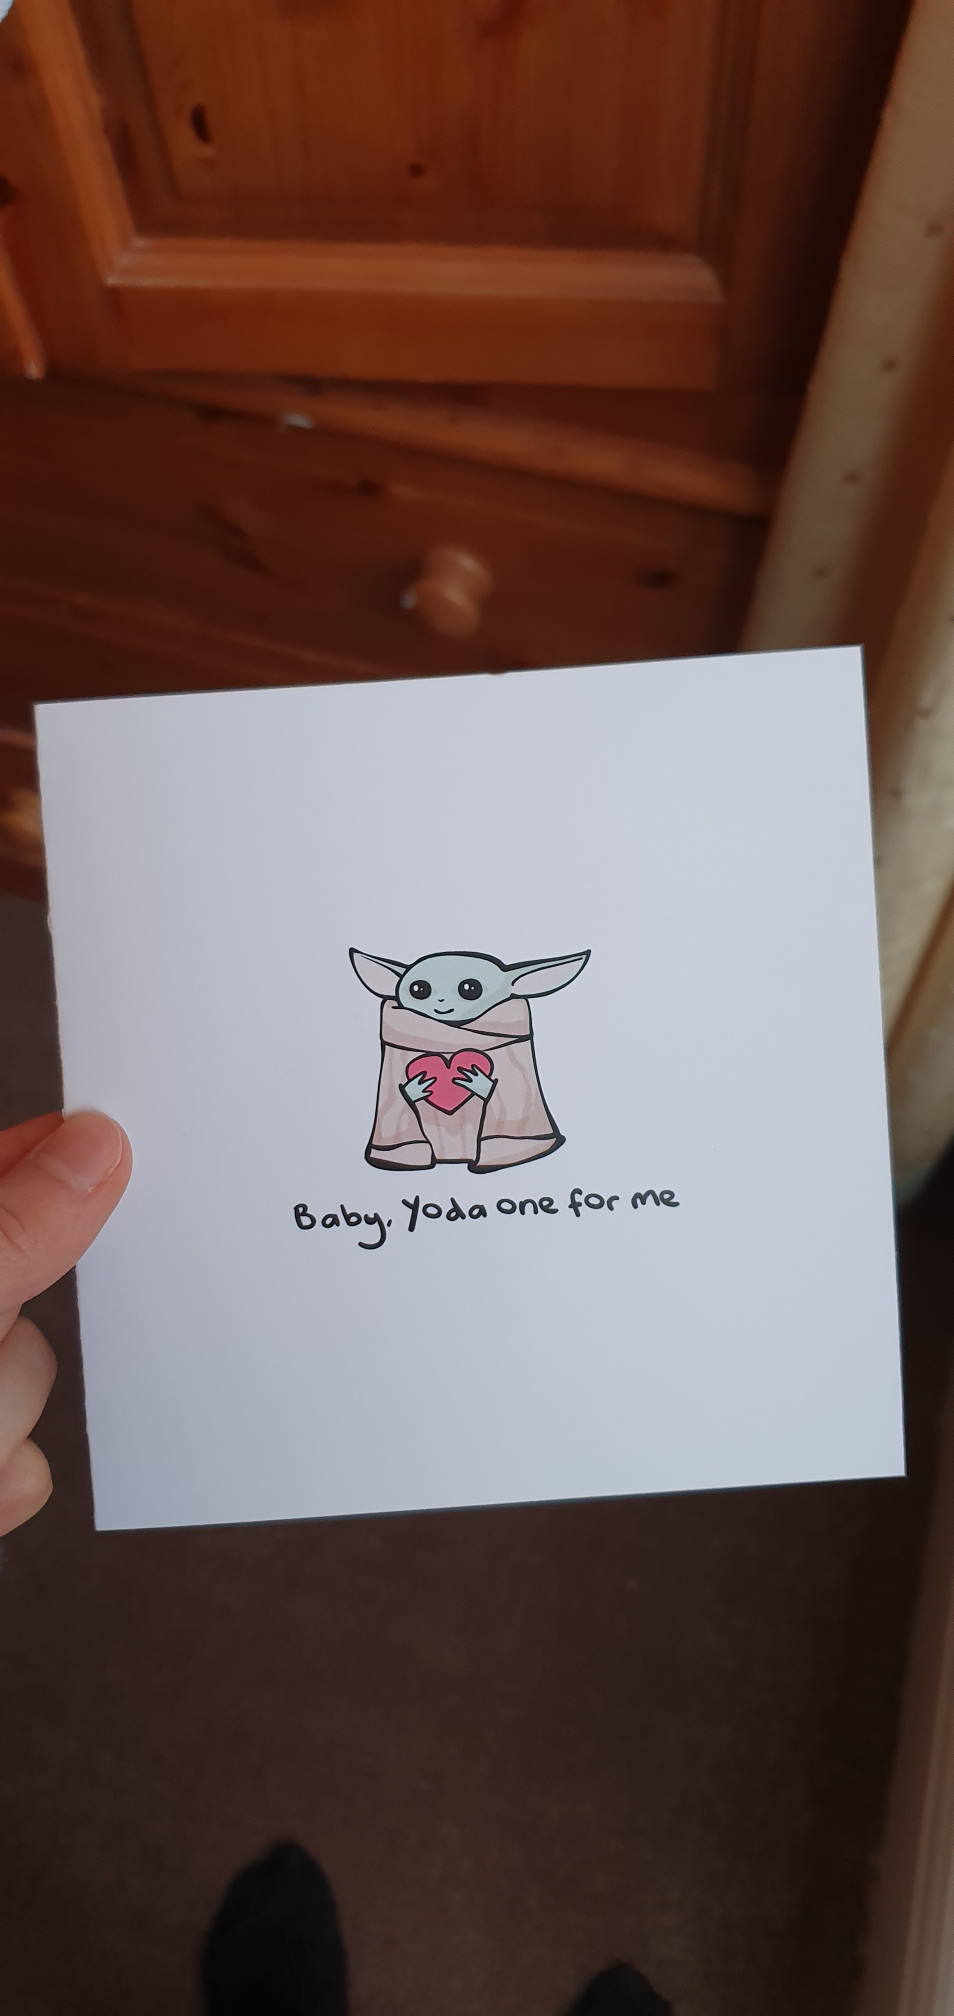 Baby, Yoda one for me